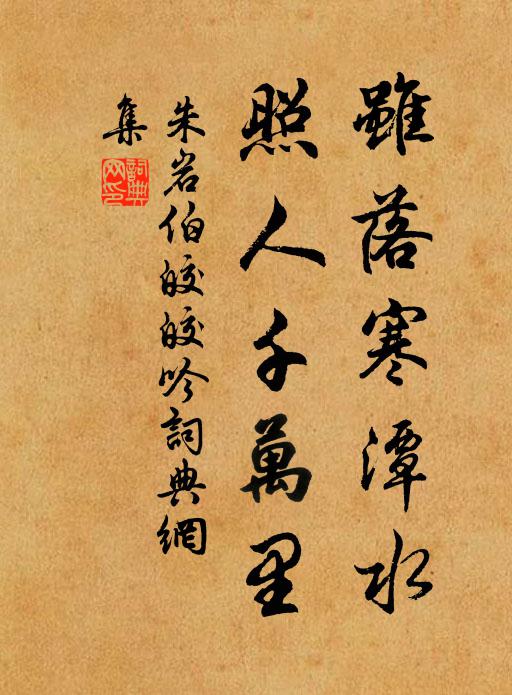 雖落寒潭水
照人千萬里
朱岩伯皎皎吟詞典網
集
詞典網印